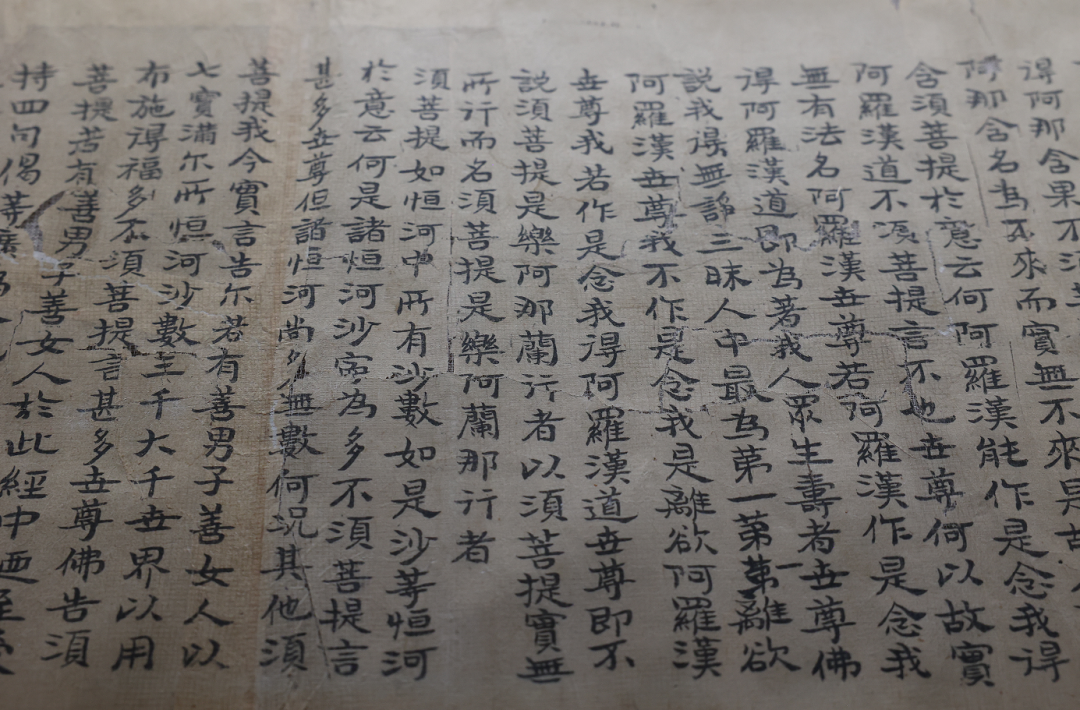 得阿那含果不
阿那含名為不來而實無不來是故
含須菩提於意云何阿羅漢能作是念我得
阿羅漢道不須菩提言不也世尊何以故實
無有法名阿羅漢世尊若阿羅漢作是念我
得阿羅漢道即為著我人眾生壽者世尊佛
說我得無諍三昧人中最為第一第第一離欲
阿羅漢世尊我不作是念我是離欲阿羅漢
世尊我若作是念我得阿羅漢道世尊即不
說須菩提是樂阿那蘭行者以須菩提實無
所行而名須菩提是樂阿蘭那行者
須菩提如恒河中所有沙數如是沙等恒河
於意云何是諸恒河沙寧為多不須菩提言
甚多世尊但諸恒河尚多無數何況其他須
菩提我今實言告尔若有善男子善女人以
七寶滿尔所恒河沙數三千大千世界以用
布施得福多不須菩提言甚多世尊佛告須
菩提若有善男子善女人於此經中迺至受
持四句偈等